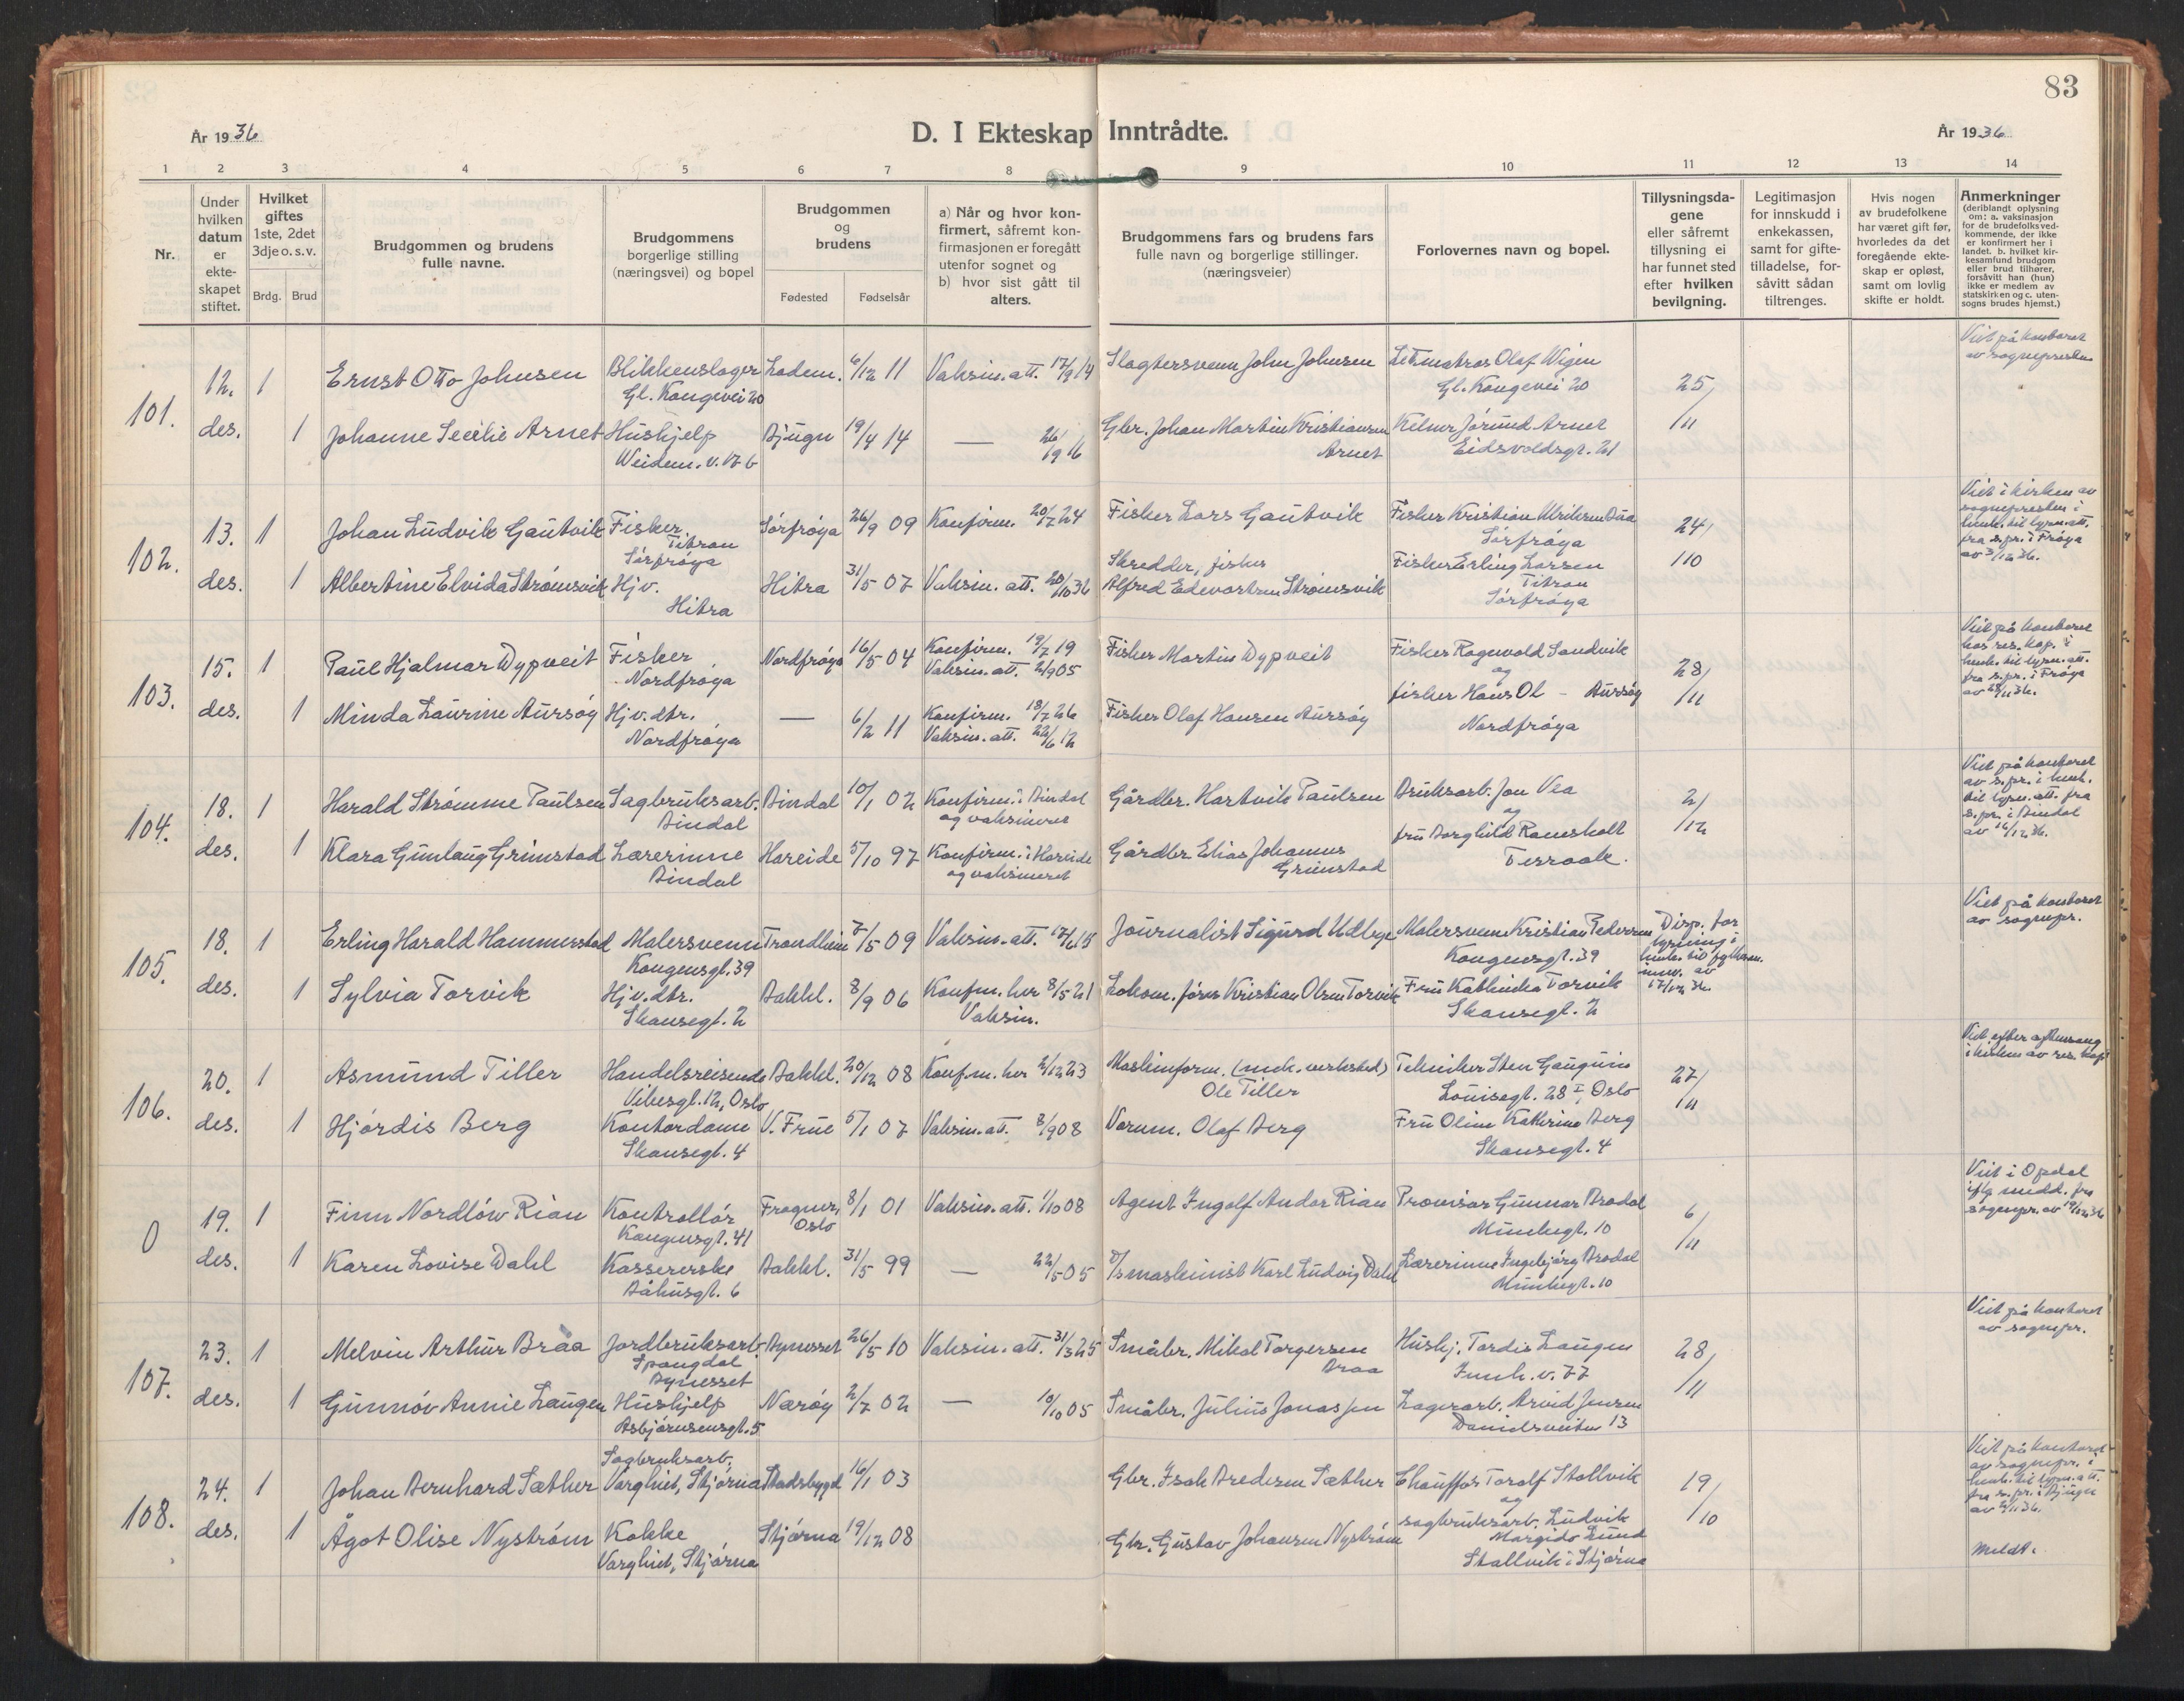 83
År 1936
D. I Ekteskap Inntrådte.
År 1936
1 2 3 4 5 6 7 8 9 10 11 12 13 14
Nr.
Under hvilken datum er ekteskapet stiftet.
Hvilket giftes 1ste, 2det 3dje o. s. v.
Brdg. Brud
Brudgommen og brudens fulle navne.
Brudgommens borgerlige stilling (næringsvei) og bopel
Brudgommen og brudens
Fødested Fødselsår
a) Når og hvor konfirmert, såfremt konfirmasjonen er foregått utenfor sognet og b) hvor sist gått til alters.
Brudgommens fars og brudens fars fulle navn og borgerlige stillinger. (næringsveier)
Forlovernes navn og bopel.
Tillysningsdagene eller såfremt tillysning ei har funnet sted efter hvilken bevilgning.
Legitimasjon for innskudd i enkekassen, samt for giftetilladelse, forsåvitt sådan tiltrenges.
Hvis nogen av brudefolkene har været gift før, hvorledes da det foregående ekteskap er opløst, samt om lovlig skifte er holdt.
Anmerkninger (deriblandt oplysning om: a. vaksinasjon for de brudefolksvedkommende, der ikke er konfirmert her i landet. b. hvilket kirkesamfund brudgom eller brud tilhører, forsåvitt han (hun) ikke er medlem av statskirken og c. utensogns brudes hjemst.)
101. 12. des. 1 Ernst Otto Johnsen Blikkenslager Gl. Kongevei 20 Ladem. 6/12 11 Vaksin. att. 17/9 14 Slagtersvenn John Johnsen Letmatros Olaf Wigen Gl. Kongevei 20 25/11 Viet på kontoret av sognepresten
1 Johanne Secilie Arnet Hushjelp Weidem. v. 17 b Bjugn 19/4 14 — 26/9 16 Gbr. Johan Martin Kristiansen Arnet Kelner Jørund Arnet Eidsvoldsgt. 21
102. 13. des. 1 Johan Ludvik Gautvik Fisker Titran Sørfrøya Sørfrøya 26/9 09 Konfirm. 20/7 24 Fisker Lars Gautvik Fisker Kristian Ulriksen Dua Sørfrøya 24/10 Viet i kirken av sognepresten i henh. til lysn. att. fra s.pr. i Frøya av 3/12 36.
1 Albertine Elvida Strømsvik Hjv. Hitra Hitra 31/5 07 Vaksin. att. 20/10 36 Skredder, fisker Alfred Edvartsen Strømsvik Fisker Erling Larsen Titran Sørfrøya
103. 15. des. 1 Paul Hjalmar Dypveit Fisker Nordfrøya Nordfrøya 16/5 04 Konfirm. 19/7 19 Vaksin. att. 2/9 05 Fisker Martin Dypveit Fisker Ragnvald Sandvik og fisker Hans Ol – Aursøy Nordfrøya 28/11 Viet på kontoret hos res. kap. i henh. til lysn. att. fra s.pr. i Frøya av 28/11 36.
1 Minda Laurine Aursøy Hjv. dtr. Nordfrøya — 6/2 11 Konfirm. 18/7 26 Vaksin. att. 22/6 12 Fisker Olaf Hansen Aursøy
104. 18. des. 1 Harald Strømme Paulsen Sagbruksarb. Bindal Bindal 10/1 02 Konfirm. i Bindal og vaksinert Gårdbr. Hartvik Paulsen Bruksarb. Jon Vea og fru Borghild Ramsholt Terraak. 2/12 Viet på kontoret av s.pr. i henh. til lysn. att. fra s.pr. i Bindal av 16/12 36.
1 Klara Gunlaug Grimstad Lærerinne Bindal Hareide 5/10 97 Konfirm. i Hareide og vaksineret Gårdbr Elias Johannes Grimstad
105. 18. des. 1 Erling Harald Hammerstad Malersvenn Kongensgt. 39 Trondheim 7/5 09 Vaksin. att. 17/6 15 Journalist Sigurd Udbye Malersvenn Kristian Pedersen Kongensgt. 39 Disp. for lysning i henh. til fylkesm. innv. av 17/12 36. Viet på kontoret av sognepr.
1 Sylvia Torvik Hjv. dtr. Skansegt. 2 Bakkl. 8/9 06 Konfm. her 8/5 21 Vaksin. Lokom. fører Kristian Olsen Torvik Fru Kathinka Torvik Skansegt. 2
106. 20. des. 1 Asmund Tiller Handelsreisende Vibesgt. 12, Oslo Bakkl. 20/12 08 Konf.m. her 2/12 23 Maskinform. (mek. verksted) Ole Tiller Tekniker Sten Gauguin Louisegt. 28 I, Oslo 27/11 Viet efter aftensang i kirken av res. kap.
1 Hjørdis Berg Kontordame Skansegt. 4 V. Frue 5/1 07 Vaksin. att. 8/9 08 Varum. Olaf Berg Fru Oline Katherine Berg Skansegt. 4
0 19. des. 1 Finn Nordløw Rian Kontrollør Kongensgt. 41 Frogner, Oslo 8/1 01 Vaksin. att. 1/10 08 Agent Ingolf Andor Rian Provisor Gunnar Brodal Munkegt. 10 6/11 Viet i Opdal iflg medd. fra sognepr. av 19/12 36
1 Karen Lovise Dahl Kassererske Båhusgt. 6 Bakkl. 31/5 99 — 22/5 05 D/smaskinist Karl Ludvig Dahl Lærerinne Ingebjørg Brodal Munkegt. 10
107. 23. des. 1 Melvin Arthur Braa Jordbruksarb. Spongdal Bynesset Bynesset 26/5 10 Vaksin. att. 31/3 25 Småbr. Mikal Torgersen Braa Hushj. Tordis Laugen Innh. v. 77 28/11 Viet på kontoret av sognepr.
1 Gunnóv Annie Laugen Hushjelp Asbjørnsensgt. 5 Nærøy 2/7 02 — 10/10 05 Småbr. Julius Jonassen Lagerarb. Arvid Jensen Danielsveiten 13
108. 24. des. 1 Johan Bernhard Sæther Sagbruksarb. Varghiet, Stjørna Stadsbygd 16/1 03 Gbr. Isak Bredesen Sæther Chauffør Toralf Stallvik og sagbruksarb. Ludvik Margido Lund Stallvik i Stjørna 19/10 Viet på kontoret av sognepr. i henh. til lysn. att. fra s.pr. i Bjugn av 2/11 36. Meldt.
1 Ågot Olise Nystrøm Kokke Varghiet, Stjørna Stjørna 19/12 08 Gbr. Gustav Johansen Nystrøm